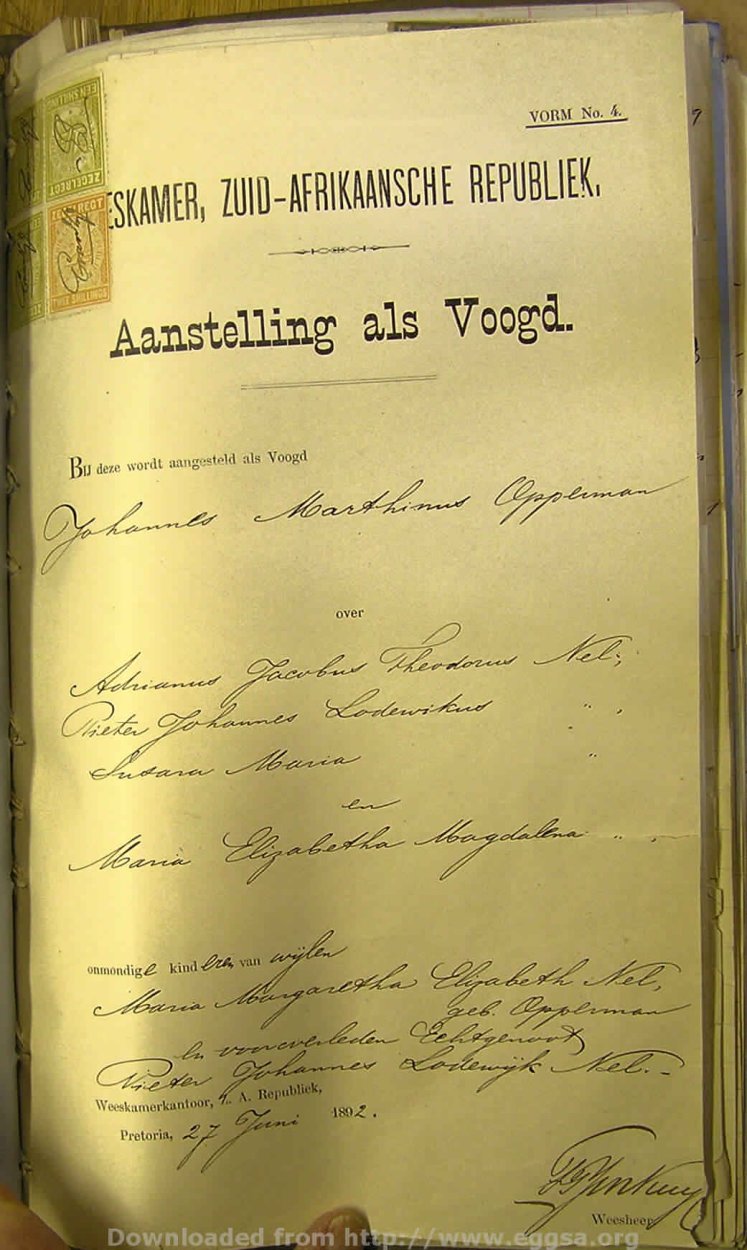 VORM No. 4.
ESKAMER, ZUID-AFRIKAANSCHE REPUBLIEK.
EEN SHILLING
ZEGELREGT
TWEE SHILLINGS
Aanstelling als Voogd.
Bij deze wordt aangesteld als Voogd
Johannes Marthinus Opperman
over
Adrianus Jacobus Theodorus Nel;
Pieter Johannes Lodewikus " ,
Susara Maria "
en
Maria Elizabetha Magdalena " ,
onmondige kinderen van wijlen
Maria Margaretha Elizabeth Nel,
geb. Opperman
en vooroverleden Echtgenoot
Pieter Johannes Lodewijk Nel.-
Weeskamerkantoor, Z. A. Republiek,
Pretoria, 27 Juni 1892.
Weesheer
Downloaded from http://www.eggsa.org